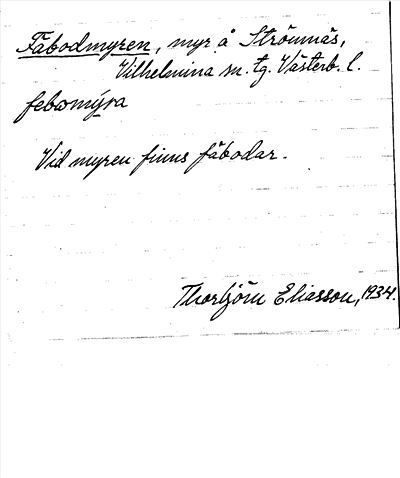 Fäbodmyren, myr å Strömnäs,
Vilhelmina sn. tg. Västerb. l.
febomýra
Vid myren finns fäbodar.
Thorbjörn Eliasson, 1934.